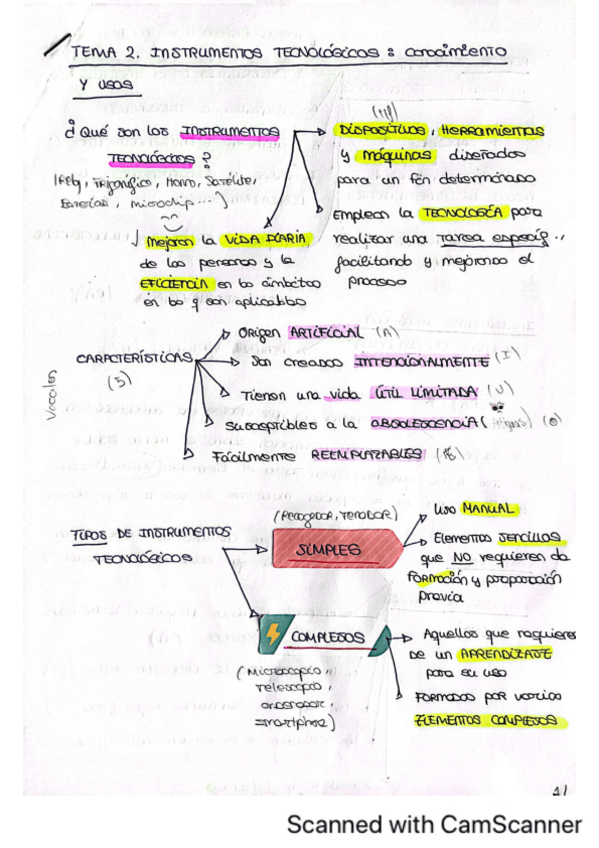 TEMA 2. INSTRUMENTOS TECNOLÓGICOS: conocimiento
Y usos
¿Qué son los INSTRUMENTOS
TECNOLÓGICOS?
(Reloj, Frigorífico, Horno, Satélite,
Baterías, microchip...)
Mejoran la VIDA DIARIA
de las personas y la
EFICIENCIA en lo ámbitos
en lo q son aplicables
DISPOSITIVOS, HERRAMIENTAS
y máquinas diseñados
para un fin determinado
Emplean la TECNOLOGÍA para
realizar una tarea específ..
facilitando y mejorando el
proceso
CARACTERÍSTICAS
(5)
Vocales
Origen ARTIFICIAL (A)
Son creados INTENCIONALMENTE (I)
Tienen una vida ÚTIL LIMITADA (U)
Susceptibles a la OBSOLESCENCIA ( ) (O)
Fácilmente REEMPLAZABLES
TIPOS DE INSTRUMENTOS
TECNOLÓGICOS
SIMPLES
Uso MANUAL
Elementos SENCILLOS
que NO requieren de
formación y preparación
previa
COMPLEJOS
(Microscopio,
telescopio,
ordenador,
smartphone)
Aquellos que requieren
de un APRENDIZAJE
para su uso
Formados por varios
ELEMENTOS COMPLEJOS
1/
Scanned with CamScanner